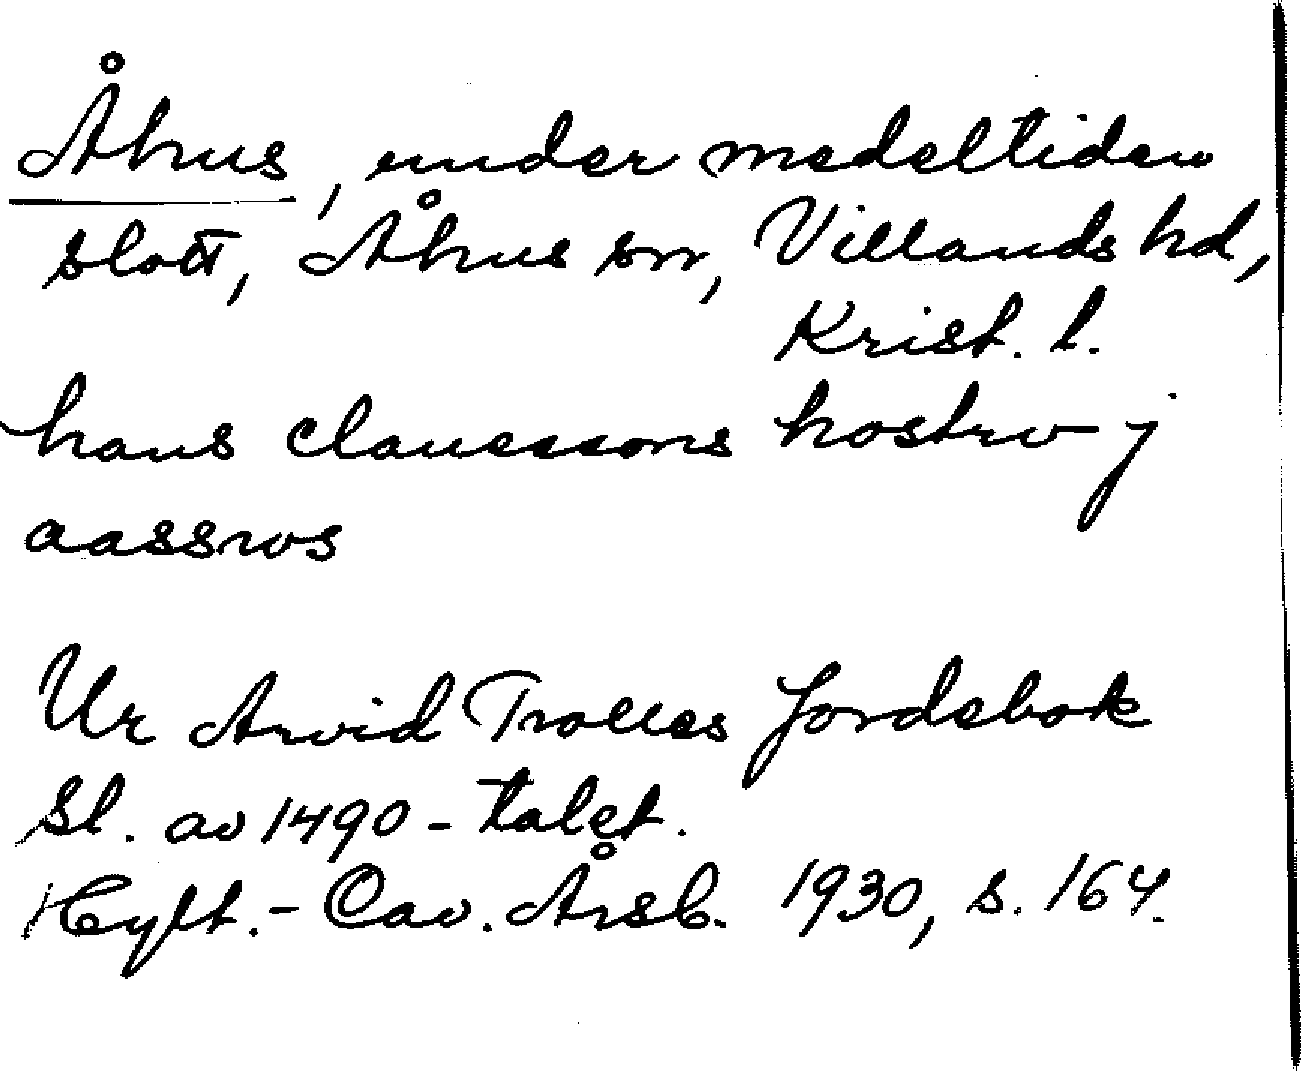 Åhus, under medeltiden
slott, Åhus sn, Villands hd,
Krist. l.
hans clauessons hostrv j
aassws
Ur Arvid Trolles Jordebok
Sl. av 1490-talet.
Hylt.-Cav. Årsb. 1930, s. 164.